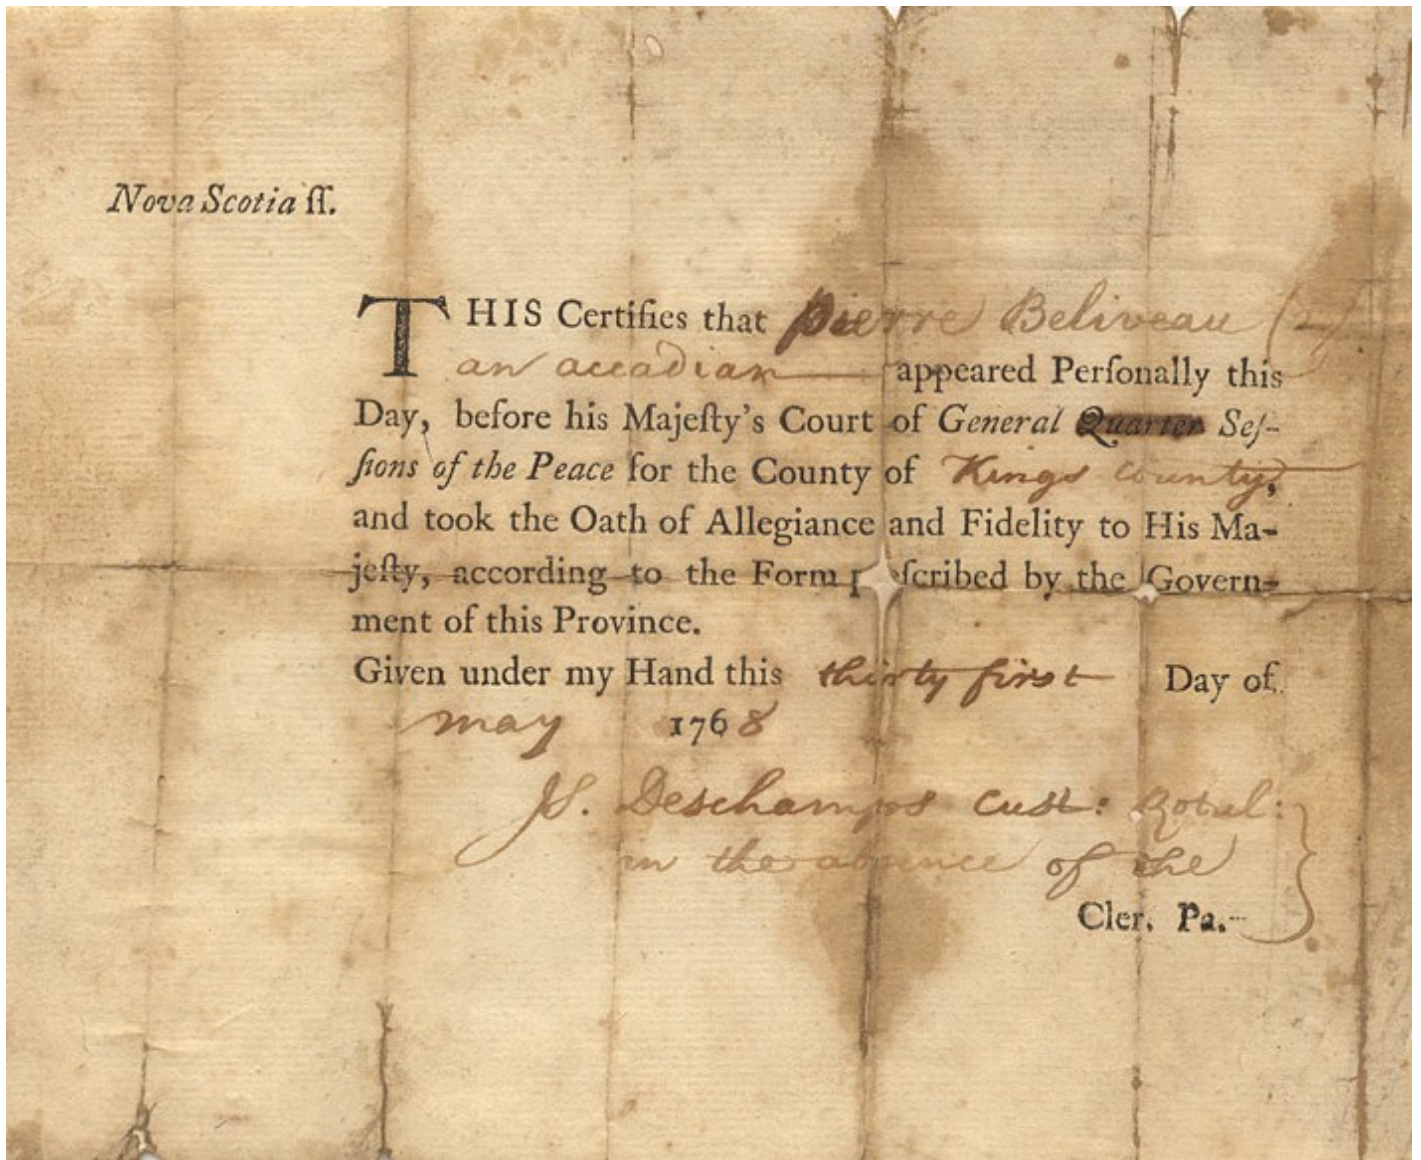 Nova Scotia ſſ.
THIS Certifies that Pierre Beliveau
an accadian appeared Perſonally this
Day, before his Majeſty's Court of General Quarter Seſ-
ſions of the Peace for the County of Kings County,
and took the Oath of Allegiance and Fidelity to His Ma-
jeſty, according to the Form p ſcribed by the Govern-
ment of this Province.
Given under my Hand this thirty first Day of
may 1768
Deschamps Cust: Rotul:
in the absence of the
Cler. Pa.